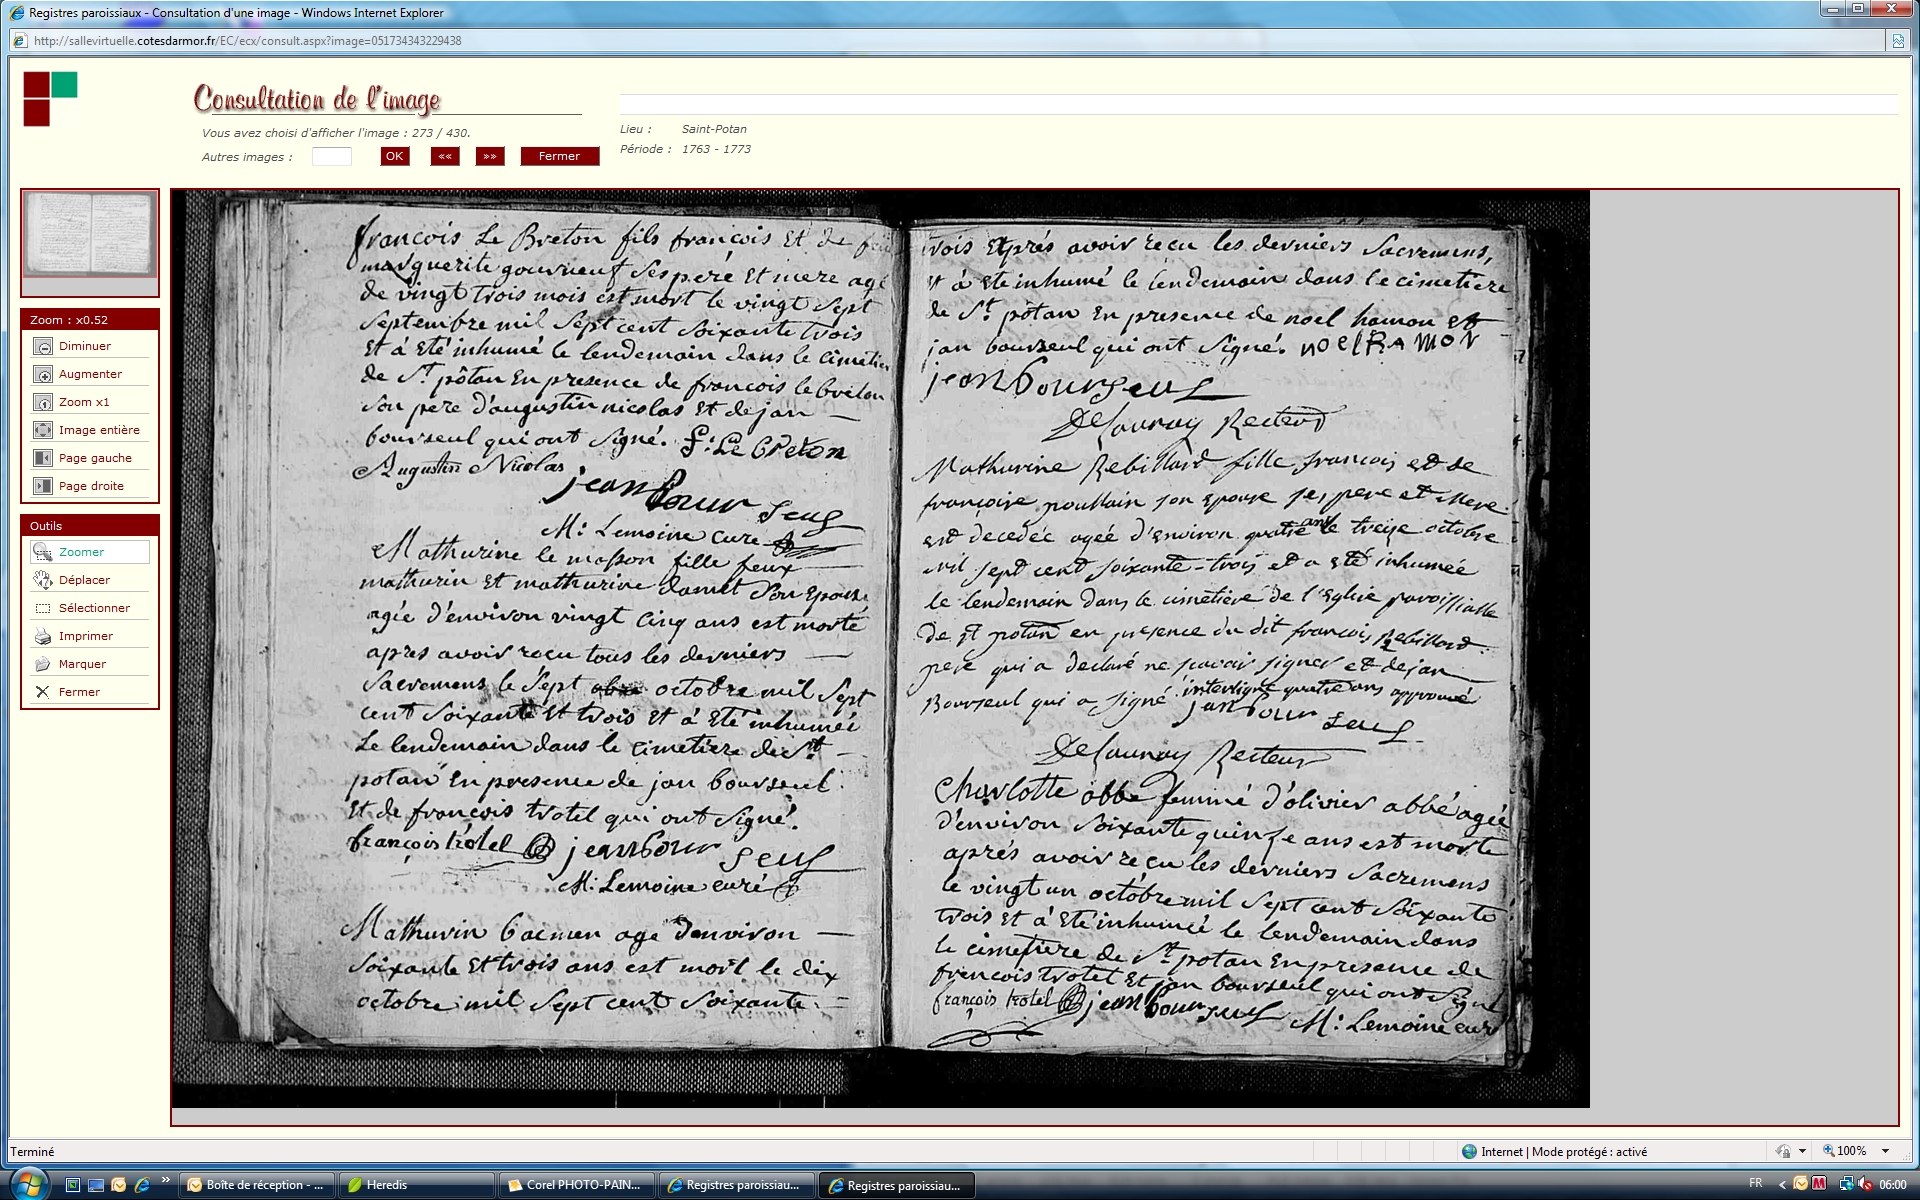 Registres paroissiaux - Consultation d'une image - Windows Internet Explorer
http://sallevirtuelle.cotesdarmor.fr/EC/ecx/consult.aspx?image=051734343229438
Consultation de l'image
Vous avez choisi d'afficher l'image : 273 / 430.
Autres images :
OK
««
»»
Fermer
Lieu : Saint-Potan
Période : 1763 - 1773
Zoom : x0.52
Diminuer
Augmenter
Zoom x1
Image entière
Page gauche
Page droite
Outils
Zoomer
Déplacer
Sélectionner
Imprimer
Marquer
Fermer
francois Le Breton fils francois Et de
marguerite gouvneuf Ses peré Et mere agé
de vingt trois mois est mort le vingt Sept
Septembre mil Sept cent Soixante trois
Et à Eté inhumé le lendemain dans le cimetier
de St pôtan En presence de francois le breton
Son pere d'augustin nicolas Et de jan
bourseul qui ont Signé. f: Le breton
Augustin Nicolas
jean bour seul
M: Lemoine curé
Mathurine le masson fille feux
mathurin Et mathurine damet Son Epouse
agée d'environ vingt Cinq ans est morte
apres avoir reçu tous les derniers
Sacremens le Sept octobre mil Sept
cent Soixante Et trois Et à Eté inhumée
Le lendemain dans le cimetiere de St
potan En presence de jan bourseul
Et de francois trotel qui ont Signé.
françois trotel jean bour seul
M: Lemoine curé
Mathurin age d'environ
Soixante Et trois ans est mort le dix
octobre mil Sept cent Soixante
trois Et aprés avoir reçu les derniers Sacremens,
Et à Eté inhumé le lendemain dans le cimetiere
de St pôtan En presence de noel hamon Et
jan bourseul qui ont Signé. noel hAMON
jean bourseul
Delaunay Recteur
Mathurine Rebillard fille francois et de
francoise poullain son epouse ses pere et Mere
est decedée ageé d'environ quatre ans le treize octobre
mil sept cent soixante-trois et a eté inhumée
le lendemain dans le cimetiere de l'Eglise paroissialle
de St potan en presence du dit francois Rebillard
pere qui a declaré ne scavoir signer et de jan
Bourseul qui a signé interligne quatre ans approuvé
jan bour seul
Delaunay Recteur
Charlotte abbé femme d'olivier abbé agée
d'environ Soixante quinze ans est morte
aprés avoir reçu les derniers Sacremens
le vingt un octobre mil Sept cent Soixante
trois Et à Eté inhumée le lendemain dans
le cimetiere de St potan En presence de
francois trotel Et jan bourseul qui ont Signé
françois trotel jean bourseul
M: Lemoine curé
Terminé
Internet | Mode protégé : activé
100%
Boîte de réception - ...
Heredis
Corel PHOTO-PAIN...
Registres paroissiau...
Registres paroissiau...
FR
06:00